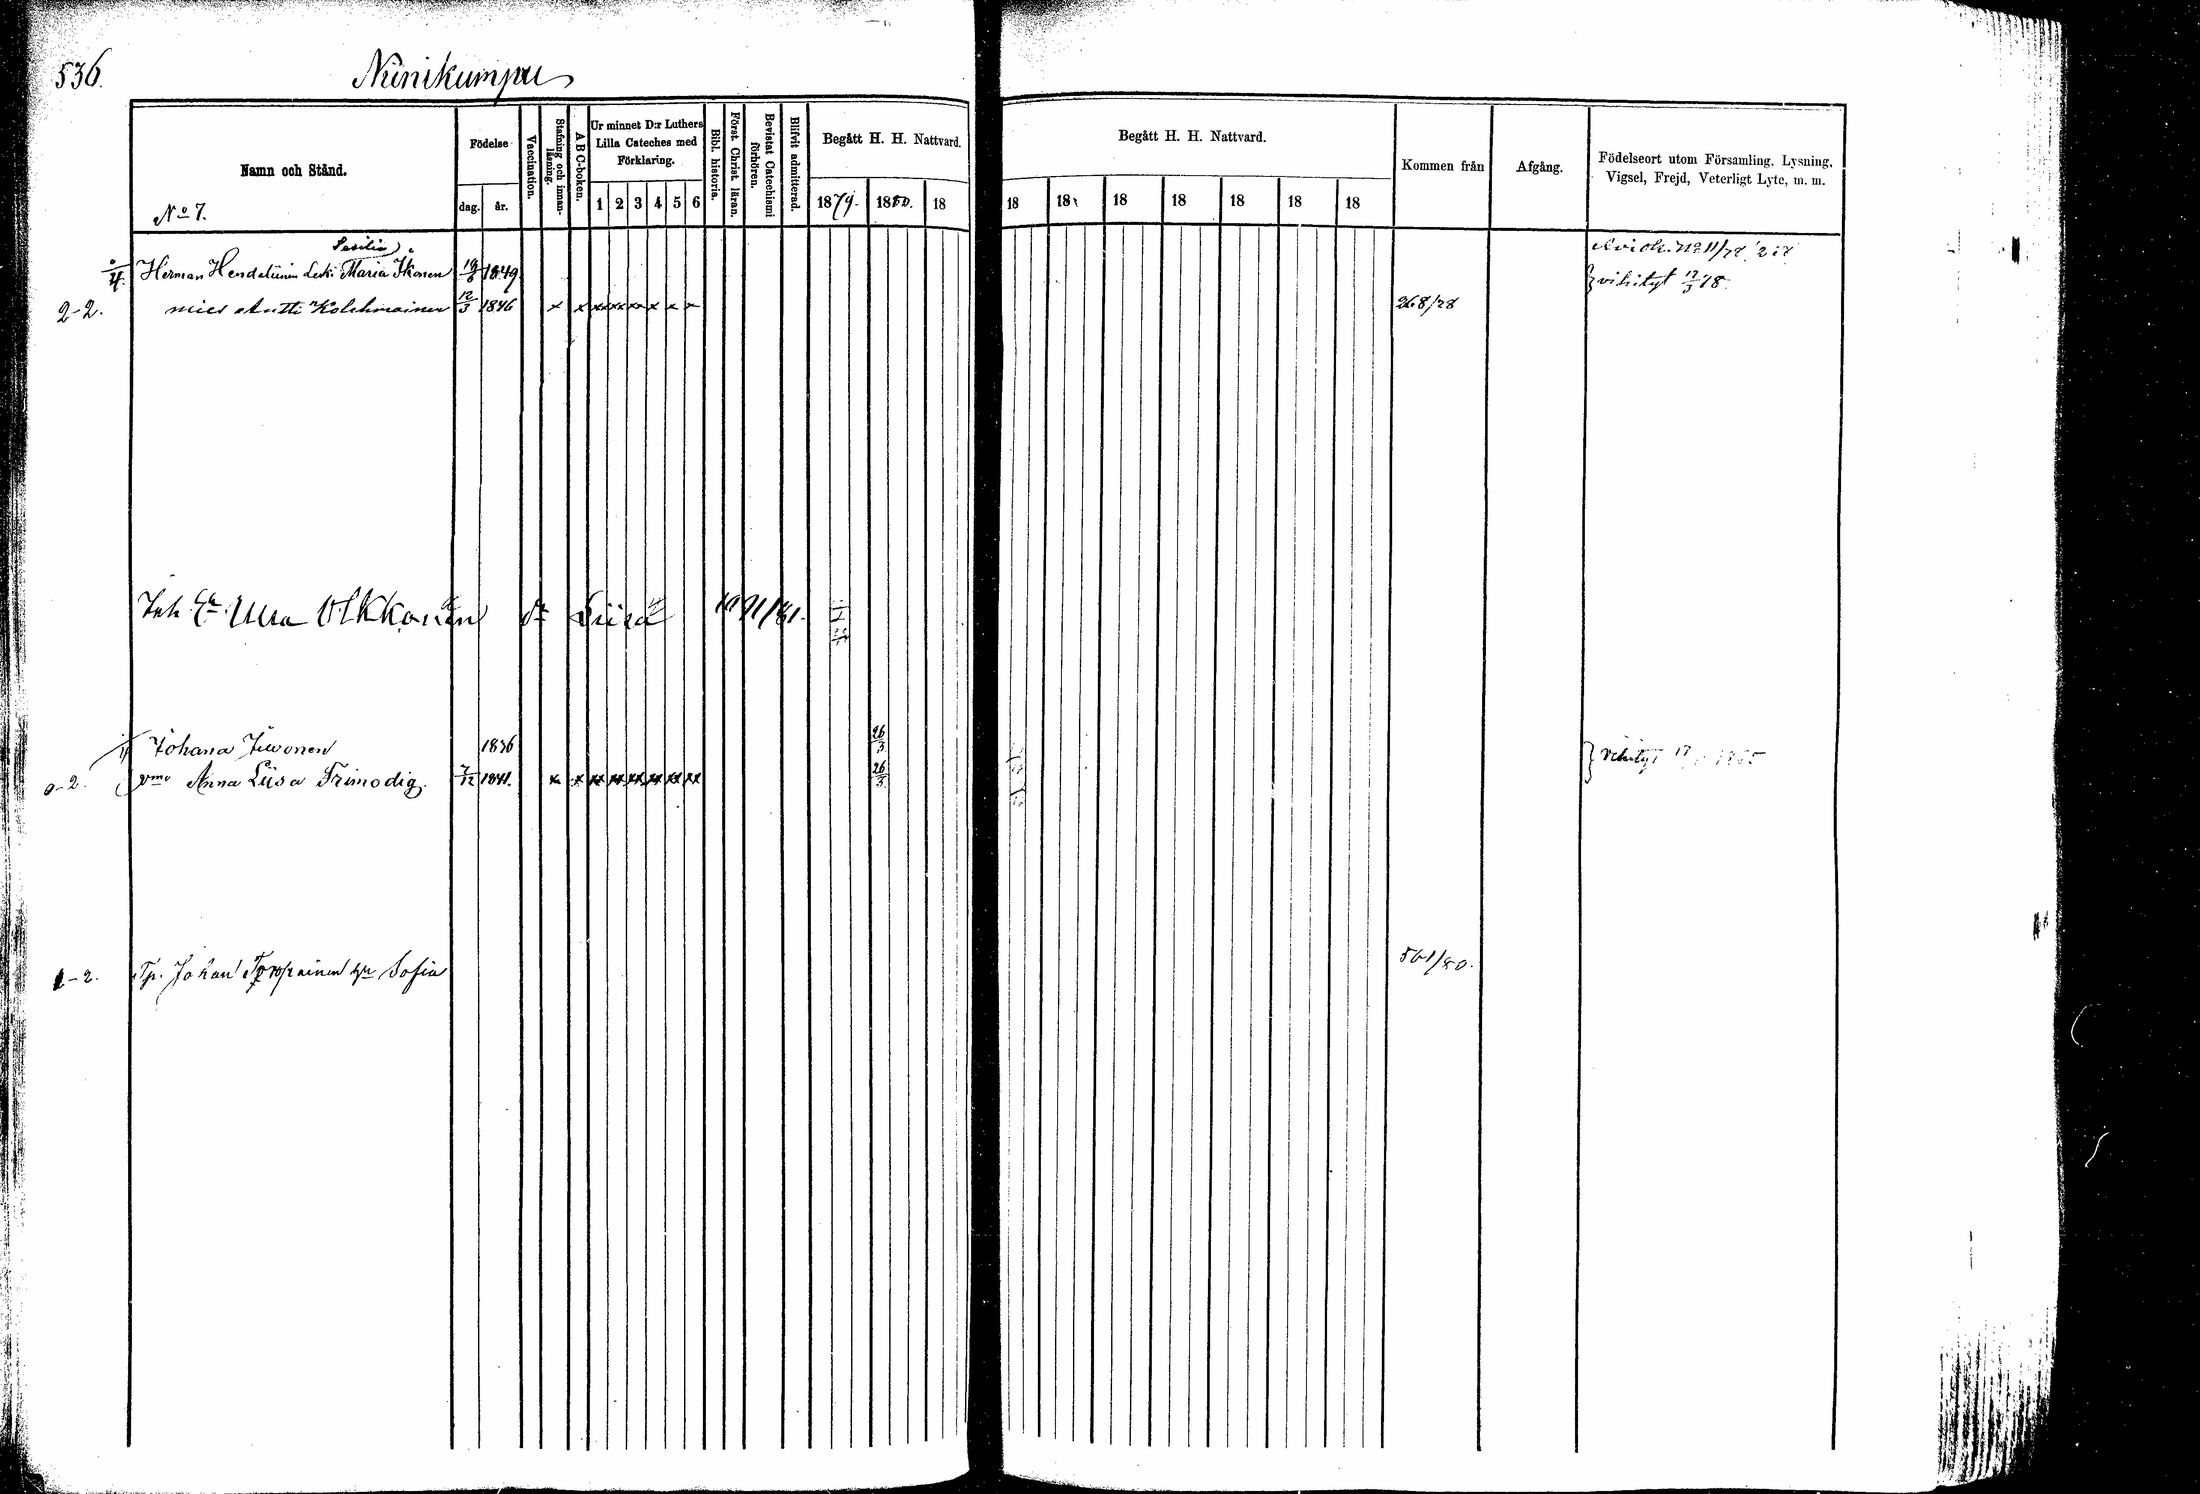 536.
Niinikumpu
Namn och Stånd.
No 7.
Födelse
dag.
år.
Vaccination.
Stafning och innanläsning.
A B C-boken.
Ur minnet D:r Luthers
Lilla Cateches med
Förklaring.
1 2 3 4 5 6
Bibl. historia.
Först. Christ. läran.
Bevistat Catechismi förhören.
Blifvit admitterad.
Begått H. H. Nattvard.
1879. 1880. 18
Begått H. H. Nattvard.
18 18 18 18 18 18 18
Kommen från
Afgång.
Födelseort utom Församling, Lysning,
Vigsel, Frejd, Veterligt Lyte, m. m.
Herman Leski Maria Ikonen 19/3 1849.
vihityt 17/3 78.
2-2. mies Antti Kolehmainen 12/3 1846 x x x x x x x x 268/78
Ulla Olkkonen Liisa
Johana 1836 26/3
0-2. Anna Liisa Frimodig. 7/12 1841. x x x x x x x x 26/3
Vihityt
1-2. Tp. Johan Toropainen Sofia 561/80.